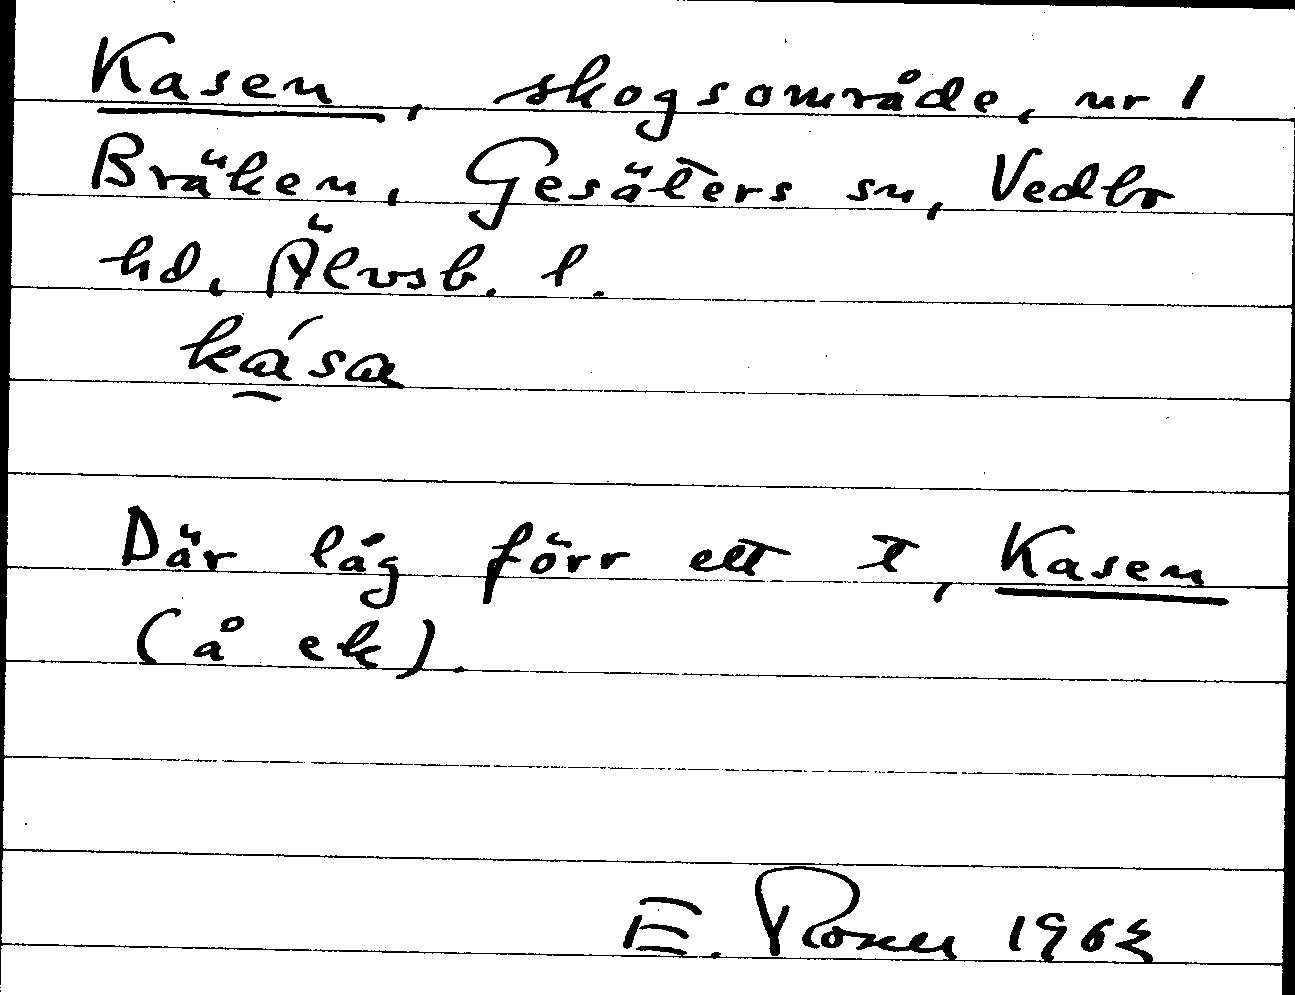 Kasen, skogsområde, nr 1
Bräken, Gesäters sn, Vedbo
hd, Älvsb. l.
ká̱sa
Där låg förr ett t, Kasen
(å ek).
E. Rosner 1963